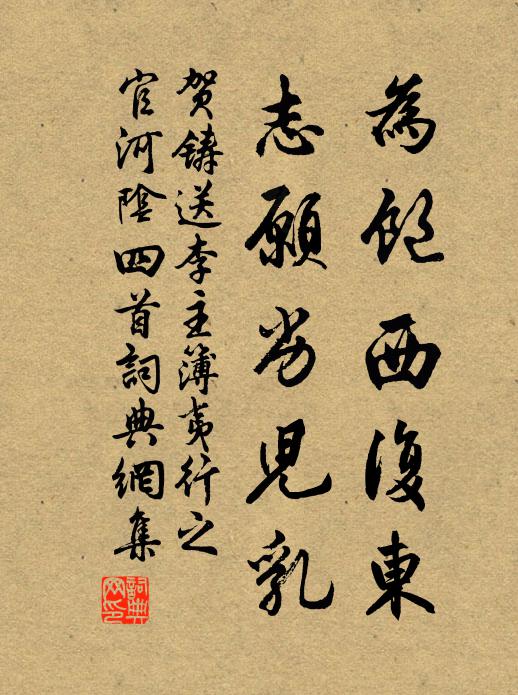 為飽西復東
志願劣兒乳
賀鑄送李主簿夷行之
官河陰四首詞典網集
詞典網印